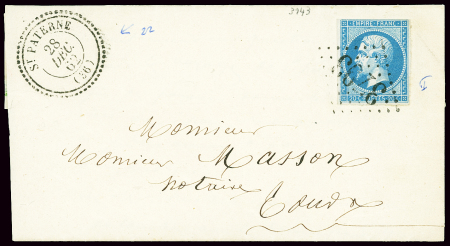 3343
22
ST PATERNE
28
DEC.
62
(36)
EMPIRE FRANC.
Monsieur
Monsieur Masson
notaire